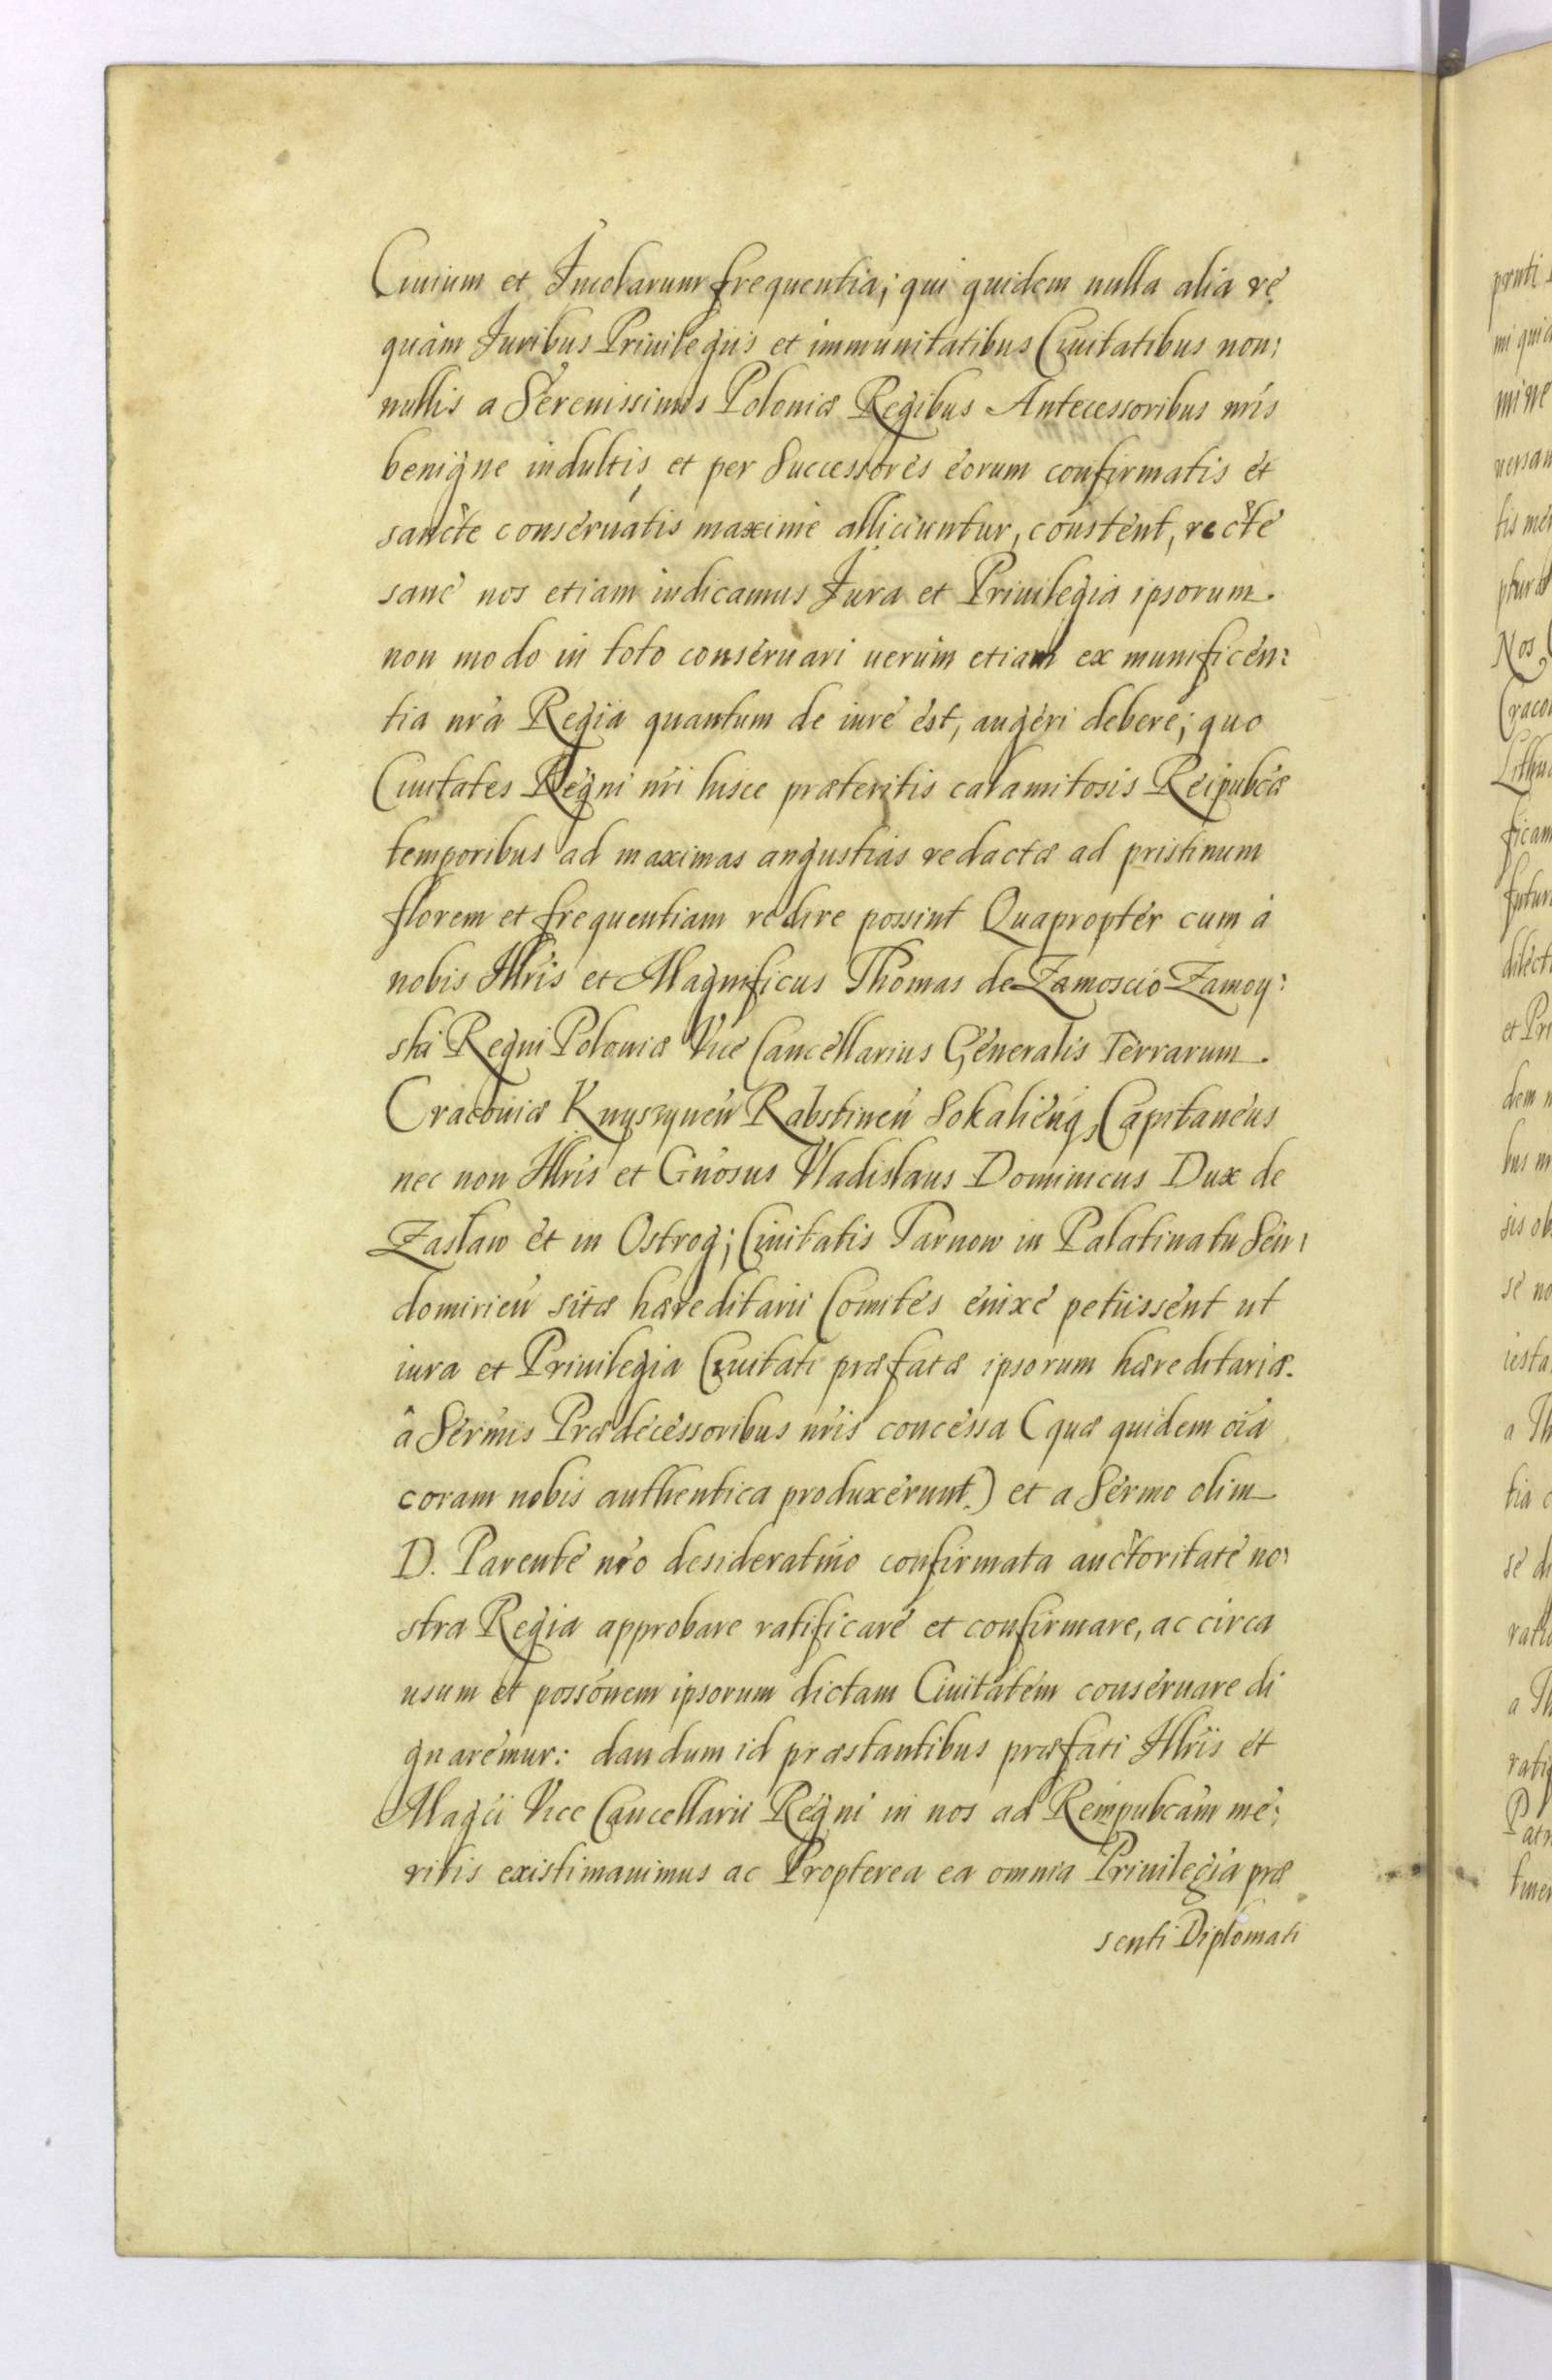 Ciuium et Incolarum frequentia; qui quidem nulla alia re
quàm Iuribus Priuilegijs et immunitatibus Ciuitatibus non:
nullis a Serenissimis Poloniæ Regibus Antecessoribus nris
benigne indultis, et per Successores eorum confirmatis et
sancte conseruatis maxime alliciuntur, constent, recte
sane nos etiam iudicamus Iura et Priuilegia ipsorum
non modo in toto conseruari uerùm etiam ex munificen:
tia nra Regia quantum de iure est, augeri debere; quo
Ciuitates Regni nri hisce præteritis calamitosis Reipubcæ
temporibus ad maximas angustias redactæ ad pristinum
florem et frequentiam redire possint Quapropter cum à
nobis Illris et Magnificus Thomas de Zamoscio Zamoy:
ski Regni Poloniæ Vice Cancellarius Generalis Terrarum
Cracouiæ Knyszynen Rabstinen Sokalienq, Capitaneus
nec non Illris et Gnosus Vladislaus Dominicus Dux de
Zaslaw et in Ostrog; Ciuitatis Tarnow in Palatinatu Sen:
domirien sitæ hæreditarii Comites enixe petiissent ut
iura et Priuilegia Ciuitati præfatæ ipsorum hæreditariæ
â Sermis Prædecessoribus nris concessa (quæ quidem oia
coram nobis authentica produxerunt) et a Sermo olim
D. Parente nro desideratmo confirmata auctoritate no:
stra Regia approbare ratificare et confirmare, ac circa
usum et possonem ipsorum dictam Ciuitatem conseruare di
gnaremur: dandum id præstantibus præfati Illris et
Magci Vice Cancellarii Regni in nos ad Rempubcam me:
ritis existimauimus ac Propterea ea omnia Priuilegia præ
senti Diplomati